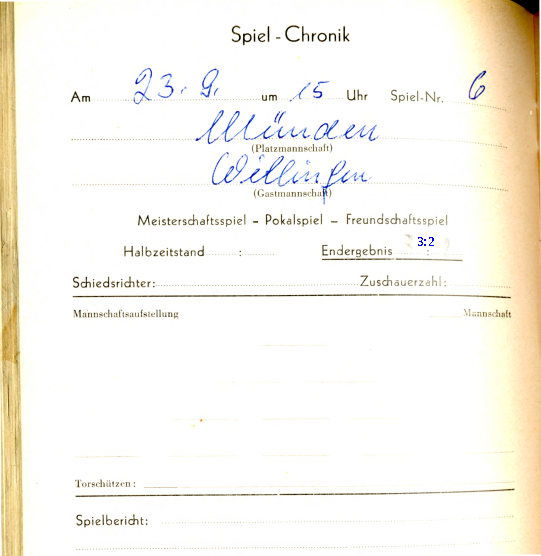 Spiel-Chronik
Am 23. 9. um 15 Uhr Spiel-Nr. 6
Münden
(Platzmannschaft)
Willingen
(Gastmannschaft)
Meisterschaftsspiel – Pokalspiel – Freundschaftsspiel
Halbzeitstand : Endergebnis 3:2
Schiedsrichter: Zuschauerzahl:
Mannschaftsaufstellung Mannschaft
Torschützen:
Spielbericht: